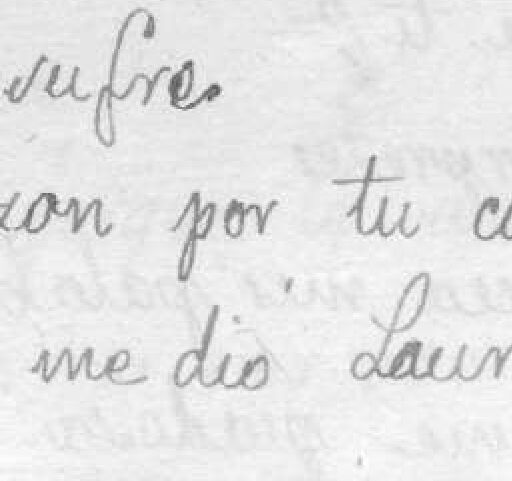 sufre.
xon por tu c
me dio Laur